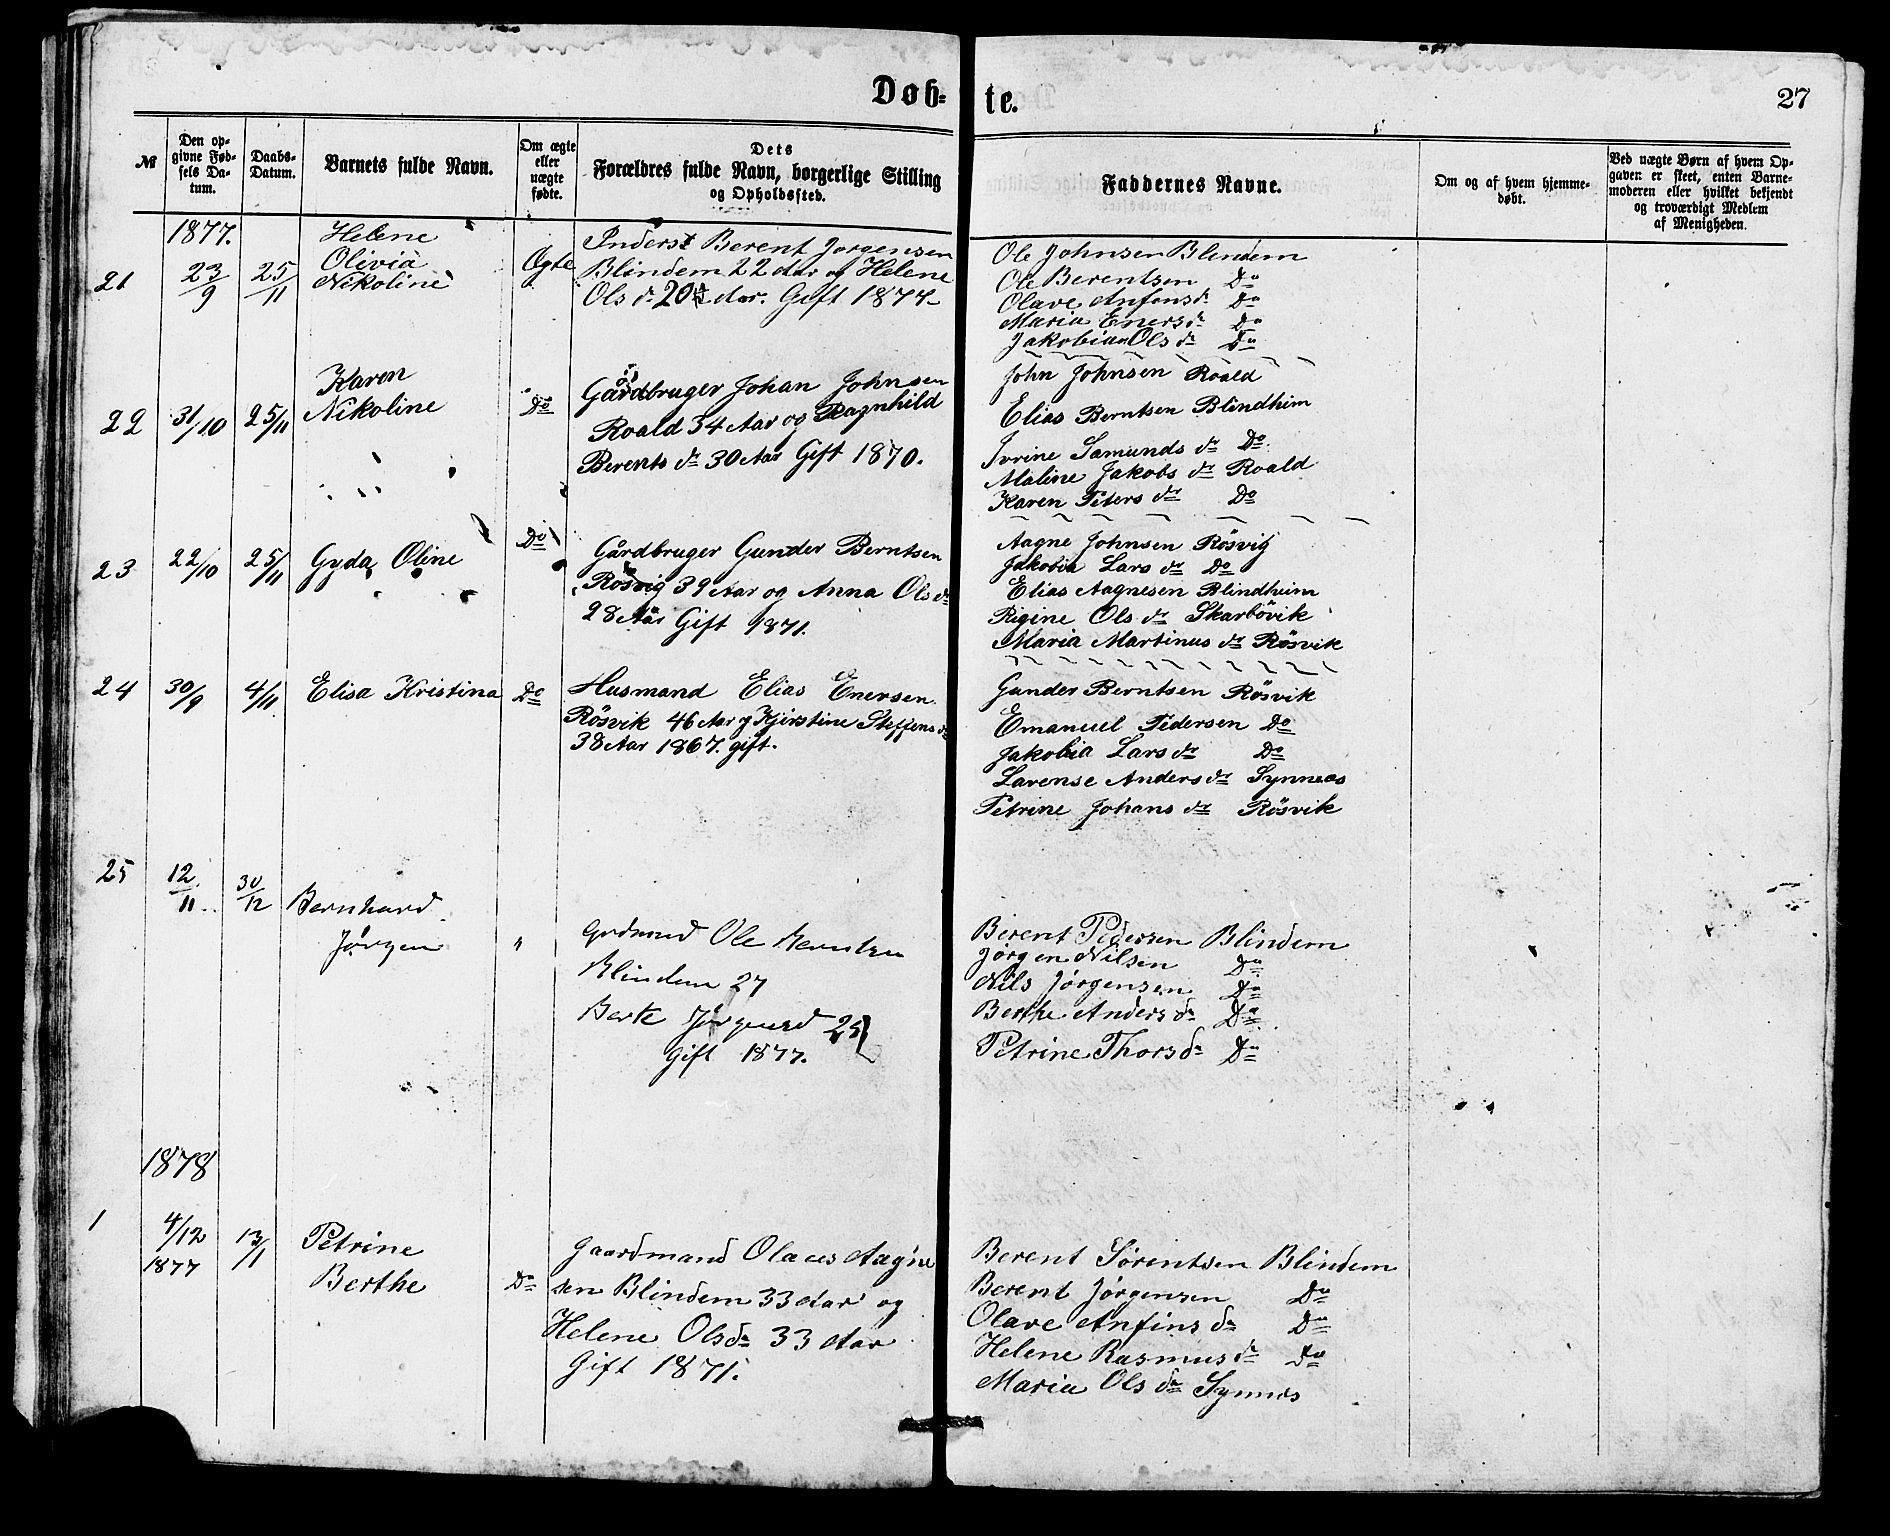 Døb-te.
27
№
Den op-
givne Fød-
sels Da-
tum.
Daabs-
Datum.
Barnets fulde Navn.
Om ægte
eller
uægte
fødte.
Dets
Forældres fulde Navn, borgerlige Stilling
og Opholdssted.
Faddernes Navne.
Om og af hvem hjemme-
døbt.
Ved uægte Børn af hvem Op-
gaven er skeet, enten Barne-
moderen eller hvilket bekjendt
og troværdigt Medlem
af Menigheden.
1877.
21
23/9
25/11
Helene
Olivia
Nikoline
Ægte
Inderst Berent Jorgensen
Blindem 22 Aar og Helene
Ols dr 20 Aar. Gift 1874
Ole Johnsen Blindem
Ole Berentsen Do
Olave Anfins dr Do
Maria Eners dr Do
Jakobia Ols dr Do
22
31/10
25/11
Karen
Nikoline
Do
Gårdbruger Johan Johnsen
Roald 34 Aar og Ragnhild
Berents dr 30 Aar Gift 1870.
John Johnsen Roald
Elias Berntsen Blindhim
Ivrine Samunds dr Do
Maline Jakobs dr Roald
Karen Peters dr Do
23
22/10
25/11
Gyda Oline
Do
Gårdbruger Gunder Berntsen
Rösvig 39 Aar og Anna Ols dr
28 Aar Gift 1871.
Aagne Johnsen Rösvig
Jakobia Lars dr Do
Elias Aagnesen Blindheim
Rigine Ols dr Skarbövik
Maria Martinus dr Rösvik
24
30/9
4/11
Elisa Kristina
Do
Husmand Elias Enersen
Rösvik 46 Aar og Kjirstine Steffens dr
38 Aar 1867. gift.
Gunder Berntsen Rösvik
Emanuel Pedersen Do
Jakobia Lars dr Do
Larense Anders dr Synnes
Petrine Johans dr Rösvik
25
12/11
30/12
Bernhard
Jørgen
"
Grdmand Ole Berntsen
Blindem 27
Berte Jørgensd 25
Gift 1877.
Berent Pedersen Blindem
Jørgen Nilsen Do
Nils Jørgensen Do
Berthe Anders dr Do
Petrine Thors dr Do
1878
1
4/12
1877
13/1
Petrine
Berthe
Do
Gaardmand Olaus Aagne
sen Blindem 33 Aar og
Helene Ols dr 33 Aar
Gift 1871.
Berent Sørentsen Blindem
Berent Jørgensen Do
Olave Anfins dr Do
Helene Rasmus dr Do
Maria Ols dr Synnes